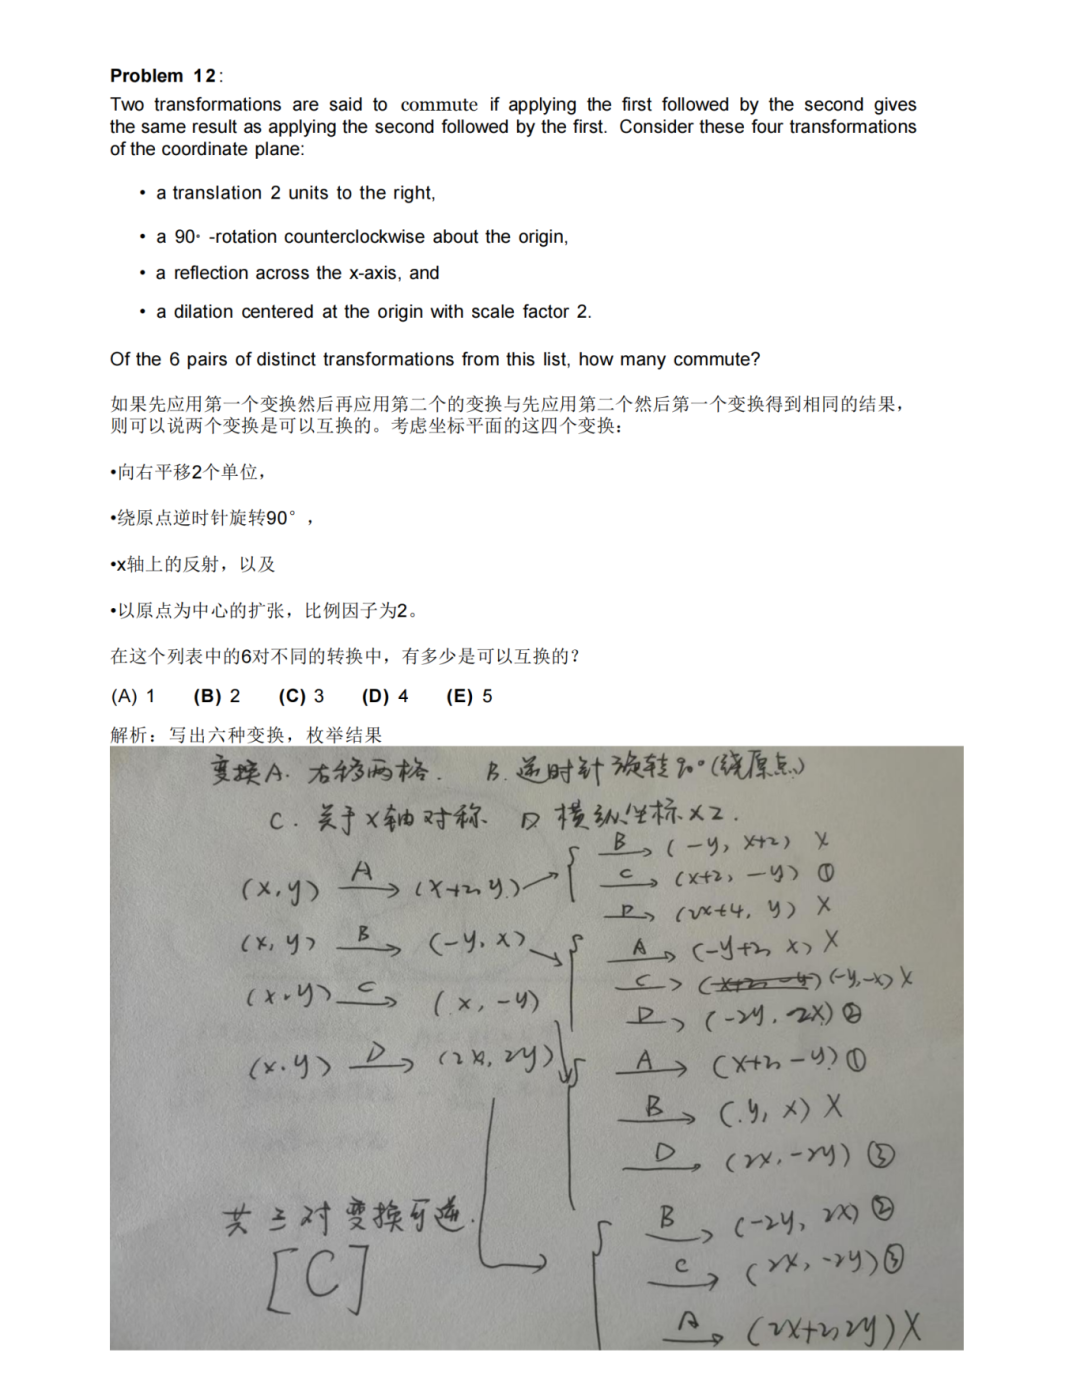 Problem 12:
Two transformations are said to commute if applying the first followed by the second gives
the same result as applying the second followed by the first. Consider these four transformations
of the coordinate plane:
• a translation 2 units to the right,
• a 90° -rotation counterclockwise about the origin,
• a reflection across the x-axis, and
• a dilation centered at the origin with scale factor 2.
Of the 6 pairs of distinct transformations from this list, how many commute?
如果先应用第一个变换然后再应用第二个的变换与先应用第二个然后第一个变换得到相同的结果，
则可以说两个变换是可以互换的。考虑坐标平面的这四个变换：
•向右平移2个单位，
•绕原点逆时针旋转90°，
•x轴上的反射，以及
•以原点为中心的扩张，比例因子为2。
在这个列表中的6对不同的转换中，有多少是可以互换的？
(A) 1 (B) 2 (C) 3 (D) 4 (E) 5
解析：写出六种变换，枚举结果
变换A. 右移两格. B. 逆时针旋转90°(绕原点)
C. 关于x轴对称 D 横纵坐标×2.
B→ (-y, x+2) X
(x,y) A→ (x+2, y) C→ (x+2, -y) ①
D→ (2x+4, y) X
(x, y) B→ (-y, x) A→ (-y+2, x) X
C→ (-y,-x) X
(x,y) C→ (x, -y) D→ (-2y, 2x) ②
(x,y) D→ (2x, 2y) A→ (x+2, -y) ①
B→ (y, x) X
D→ (2x, -2y) ③
共三对变换可逆. B→ (-2y, 2x) ②
[C] C→ (2x, -2y) ③
A→ (2x+2, 2y) X